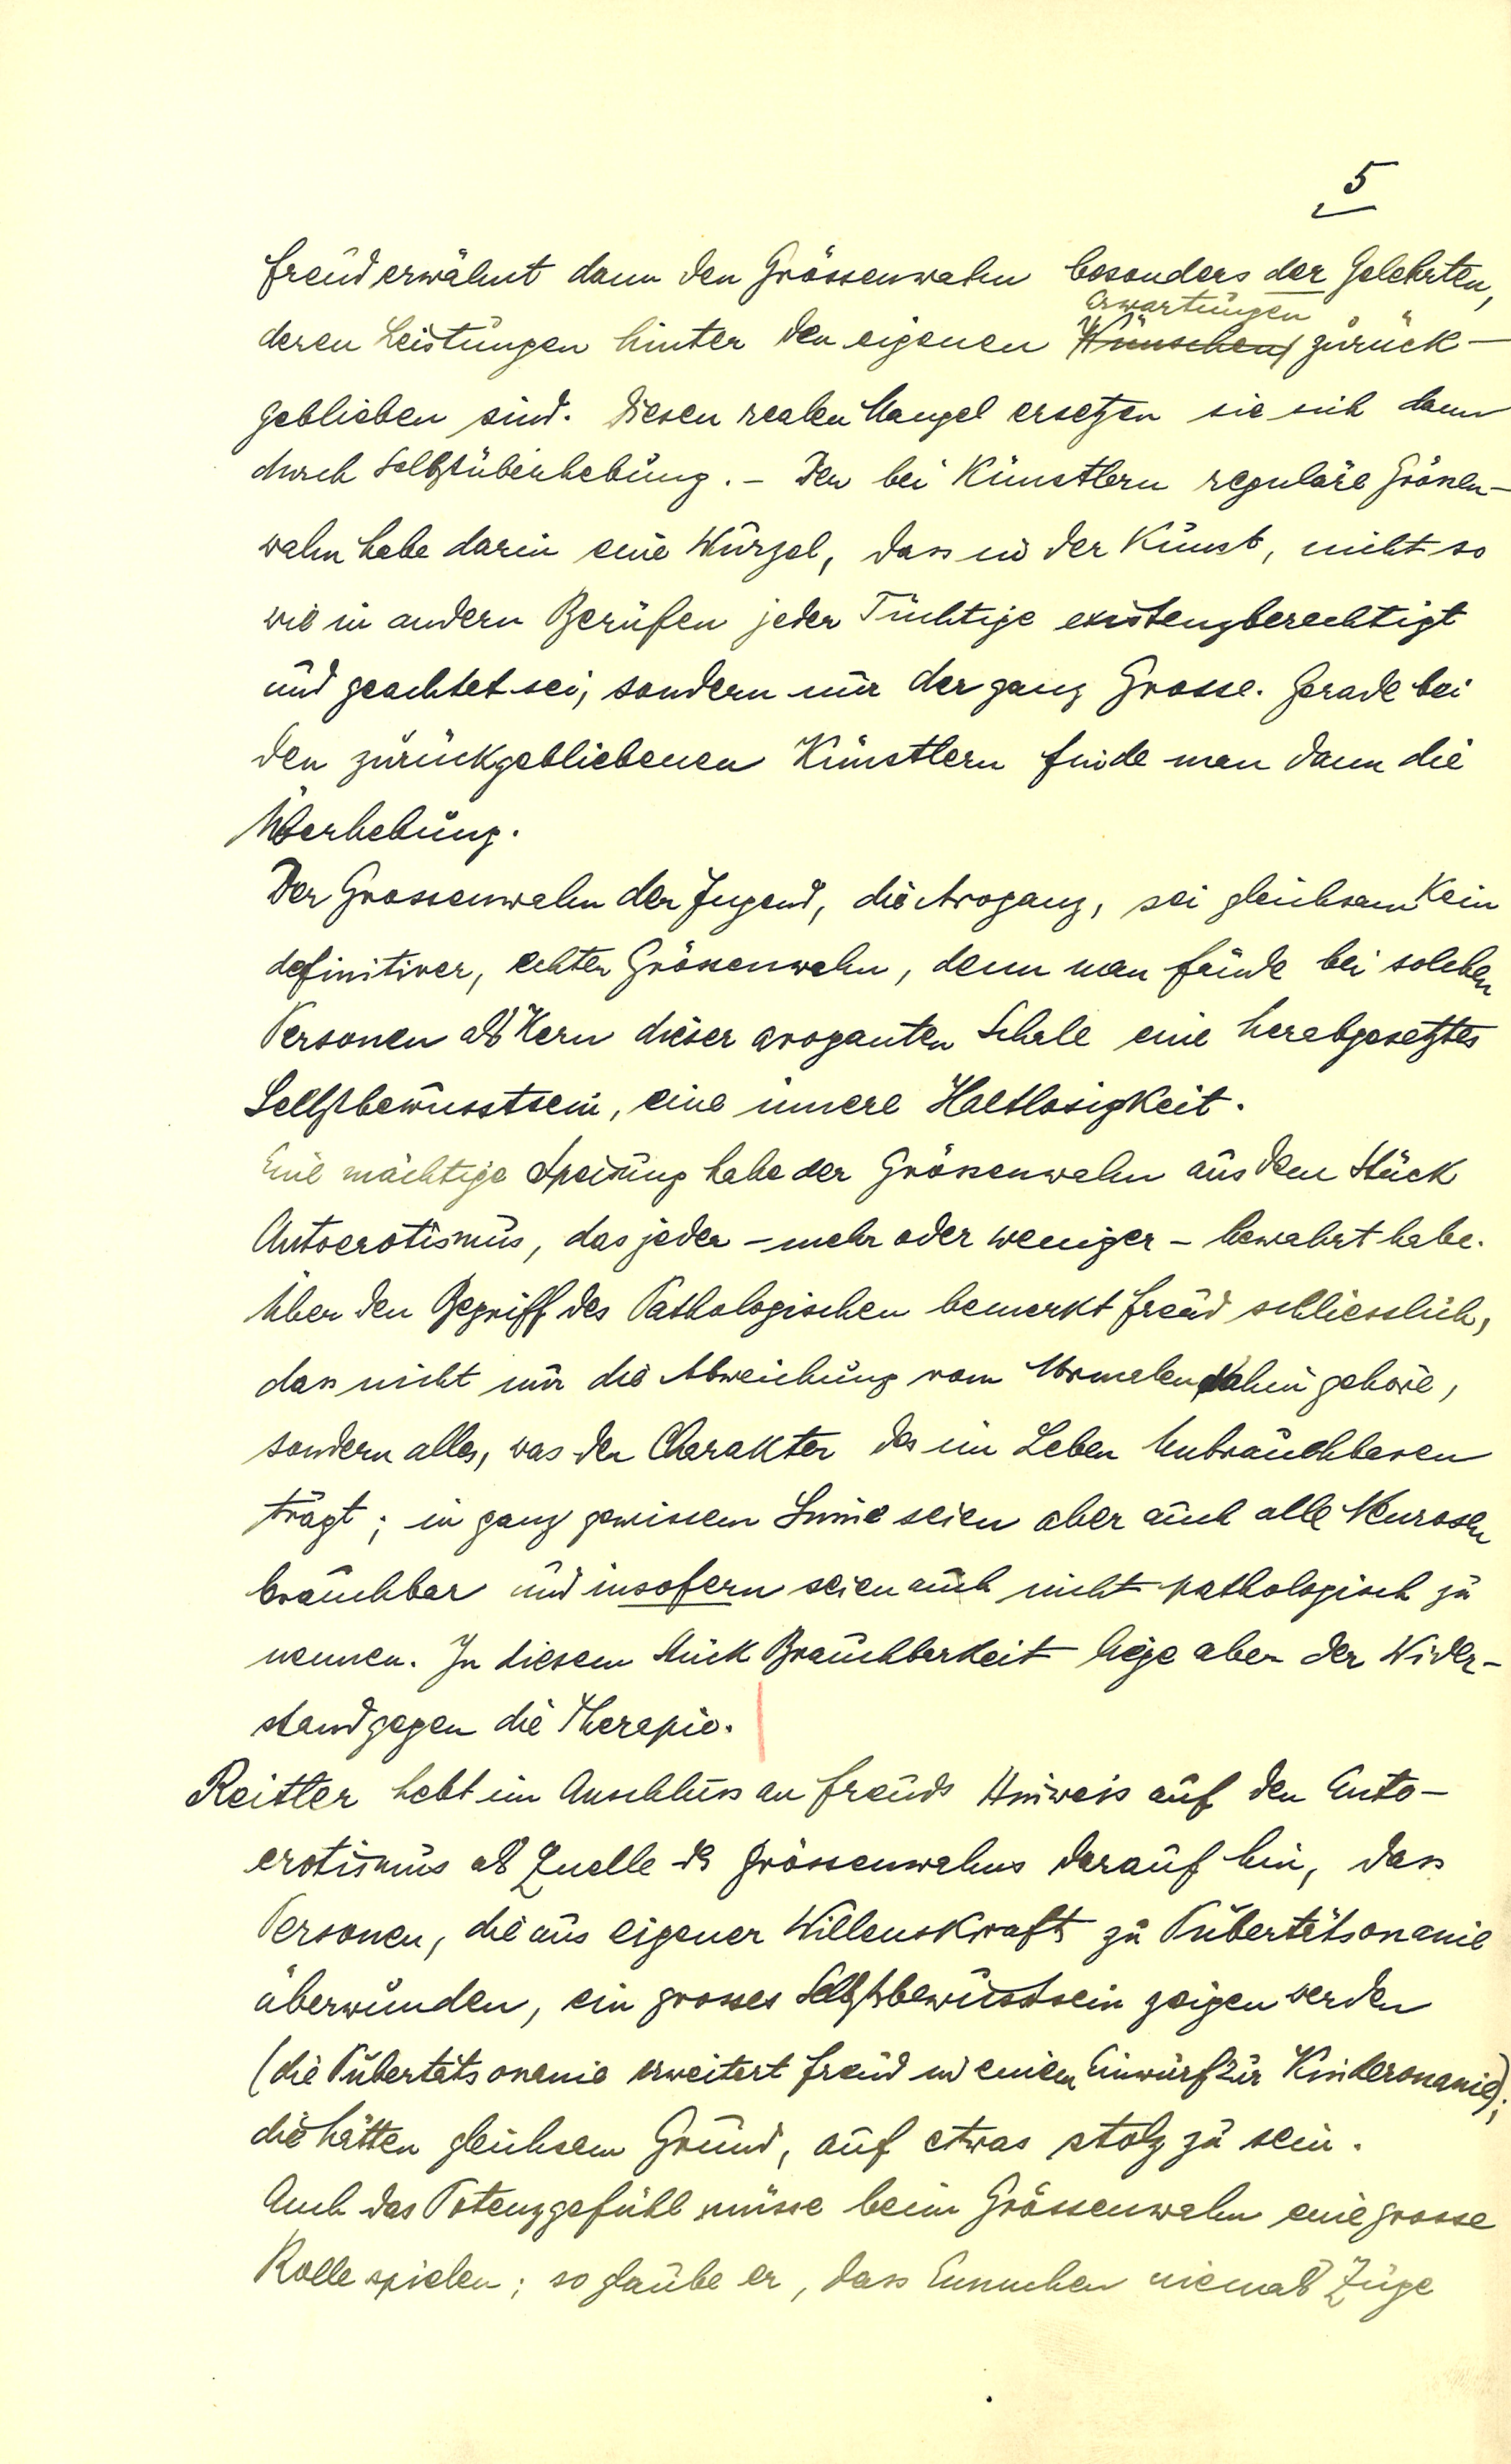 5
Freud erwähnt dann den Grössenwahn besonders der Gelehrten,
Erwartungen
deren Leistungen hinter den eigenen Wünschen zurück-
geblieben sind. Diesen realen Mangel ersetzen sie sich dann
durch Selbstüberhebung. – Der bei Künstlern reguläre Grössen-
wahn habe darin eine Wurzel, dass in der Kunst, nicht so
wie in andern Berufen jeder Tüchtige existenzberechtigt
und geachtet sei, sondern nur der ganz Grosse. Gerade bei
den zurückgebliebenen Künstlern finde man dann die
Überhebung.
Der Grossenwahn der Jugend, die Arroganz, sei gleichsam kein
definitiver, echter Grössenwahn, denn man fände bei solchen
Personen als Kern dieser arroganten Schale eine herabgesetztes
Selbstbewusstsein, eine innere Haltlosigkeit.
Eine mächtige Speisung habe der Grössenwahn aus dem Stück
Autoerotismus, das jeder – mehr oder weniger – bewahrt habe.
Über den Begriff des Pathologischen bemerkt Freud schliesslich,
dass nicht nur die Abweichung vom Normalen dahin gehöre,
sondern alles, was den Charakter des im Leben Unbrauchbaren
trägt; in ganz gewissem Sinne seien aber auch alle Neurosen
brauchbar und insofern seien auch nicht pathologisch zu
nennen. In diesem Stück Brauchbarkeit liege aber der Wider-
stand gegen die Therapie.
Reitler hebt im Anschluss an Freuds Hinweis auf den Auto-
erotismus als Quelle des Grössenwahns darauf hin, dass
Personen, die aus eigener Willenskraft zu Pubertätsonanie
überwunden, ein grosses Selbstbewusstsein zeigen werden
(die Pubertätsonanie erweitert Freud in einem Einwurf zur Kinderonanie);
die hätten gleichsam Grund, auf etwas stolz zu sein.
Auch das Potenzgefühl müsse beim Grössenwahn eine grosse
Rolle spielen; so glaube er, dass Eunuchen niemals Züge